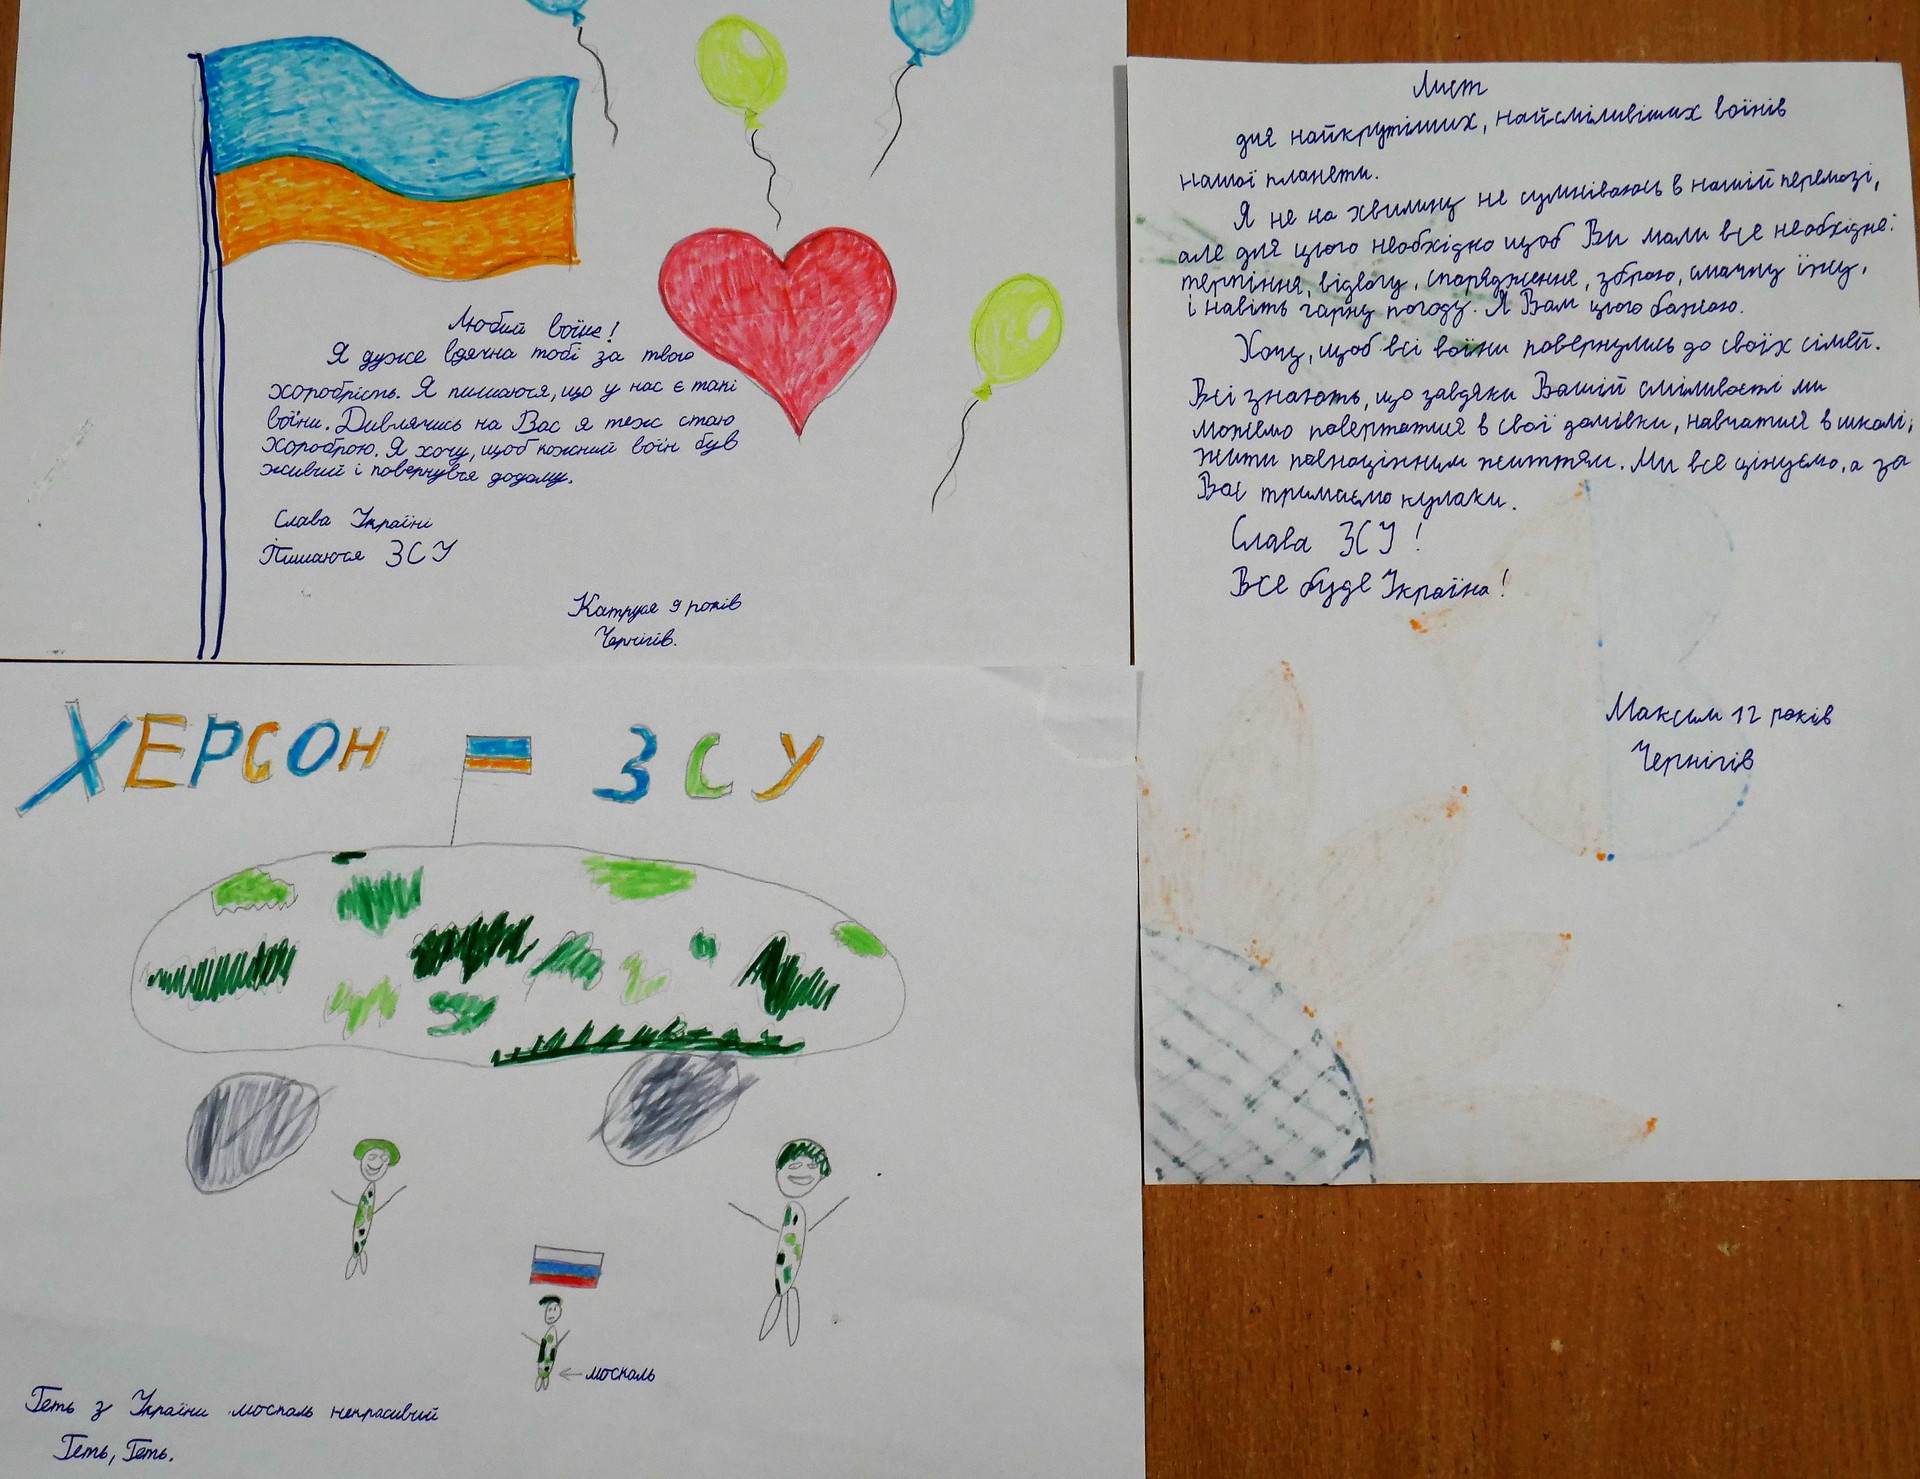 Любий воїне!
Я дуже вдячна тобі за твою
хоробрість. Я пишаюся, що у нас є такі
воїни. Дивлячись на Вас я теж стаю
хороброю. Я хочу, щоб кожний воїн був
живий і повернувся додому.
Слава Україні
Пишаюся ЗСУ
Катруся 9 років
Чернігів.
Лист
для найкрутіших, найсміливіших воїнів
нашої планети.
Я не на хвилину не сумніваюсь в нашій перемозі,
але для цього необхідно щоб Ви мали все необхідне:
терпіння, відвагу, спорядження, зброю, смачну їжу,
і навіть гарну погоду. Я Вам цього бажаю.
Хочу, щоб всі воїни повернулись до своїх сімей.
Всі знають, що завдяки Вашій сміливості ми
можемо повертатися в свої домівки, навчатися в школі,
жити повноцінним життям. Ми все цінуємо, а за
Вас тримаємо кулаки.
Слава ЗСУ!
Все буде Україна!
Максим 12 років
Чернігів
ХЕРСОН ЗСУ
москаль
Геть з України москаль некрасивий
Геть, Геть.